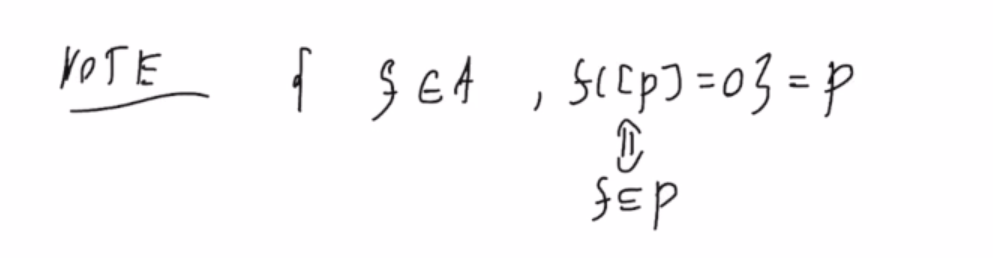 NOTE { f ∈ A , f([p]=0} = p
⇕
f ∈ p